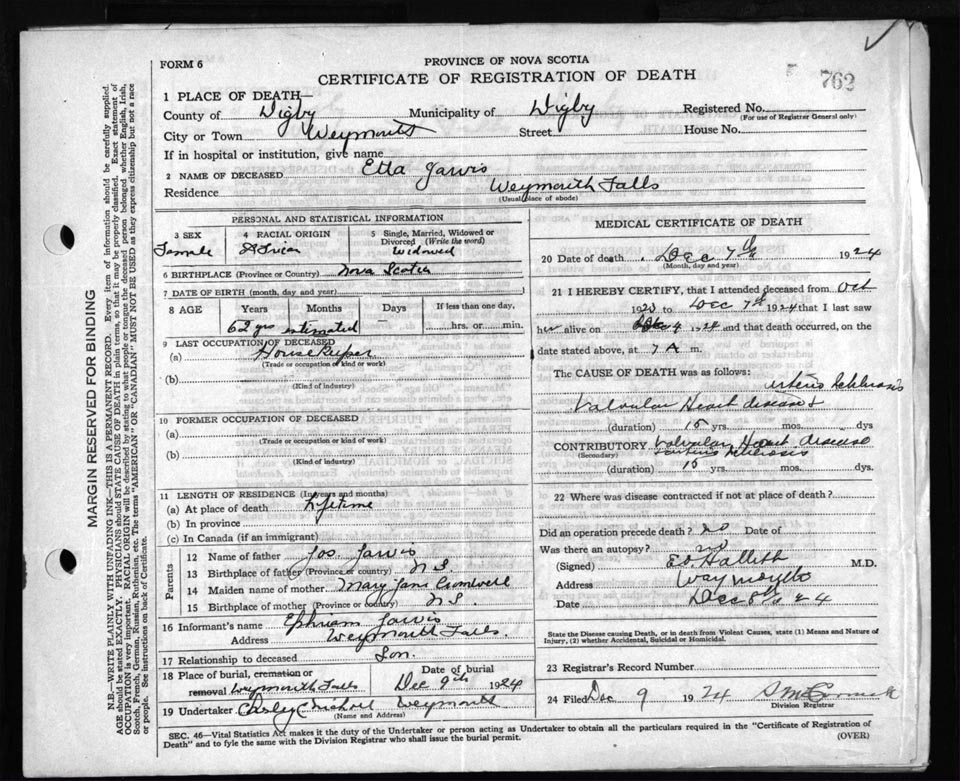 FORM 6
PROVINCE OF NOVA SCOTIA
762
CERTIFICATE OF REGISTRATION OF DEATH
1 PLACE OF DEATH—
County of Digby Municipality of Digby Registered No.
(For use of Registrar General only)
City or Town Weymouth Street House No.
If in hospital or institution, give name
2 NAME OF DECEASED Etta Jarvis
Residence Weymouth Falls
(Usual place of abode)
PERSONAL AND STATISTICAL INFORMATION
3 SEX 4 RACIAL ORIGIN 5 Single, Married, Widowed or Divorced (Write the word)
Female African Widowed
6 BIRTHPLACE (Province or Country) Nova Scotia
7 DATE OF BIRTH (month, day and year)
8 AGE Years Months Days If less than one day,
62 yrs estimated hrs. or min.
9 LAST OCCUPATION OF DECEASED
(a) House Keeper
(Trade or occupation or kind of work)
(b)
(Kind of industry)
10 FORMER OCCUPATION OF DECEASED
(a)
(Trade or occupation or kind of work)
(b)
(Kind of industry)
11 LENGTH OF RESIDENCE (In years and months)
(a) At place of death Lifetime
(b) In province
(c) In Canada (if an immigrant)
Parents
12 Name of father Jos Jarvis
13 Birthplace of father (Province or country) N S
14 Maiden name of mother Mary Jane Cromwell
15 Birthplace of mother (Province or country) N S
16 Informant's name Ephriam Jarvis
Address Weymouth Falls.
17 Relationship to deceased Son.
18 Place of burial, cremation or removal Weymouth Falls Date of burial Dec 9th 1924
19 Undertaker Weymouth
(Name and Address)
MEDICAL CERTIFICATE OF DEATH
20 Date of death Dec 7th 1924
(Month, day and year)
21 I HEREBY CERTIFY, that I attended deceased from Oct
1920 to Dec 7th 1924 that I last saw
her alive on 4 1924 and that death occurred, on the
date stated above, at 7 A m.
The CAUSE OF DEATH was as follows:
Valvular Heart disease &
(duration) 15 yrs. mos. dys
CONTRIBUTORY Valvular Heart disease
(Secondary)
(duration) 15 yrs. mos. dys.
22 Where was disease contracted if not at place of death?
Did an operation precede death? no Date of
Was there an autopsy? no
(Signed) M.D.
Address Waymouth
Date Dec 8th 24
State the Disease causing Death, or in death from Violent Causes, state (1) Means and Nature of Injury, (2) whether Accidental, Suicidal or Homicidal.
23 Registrar's Record Number
24 Filed Dec 9 1924
Division Registrar
SEC. 46—Vital Statistics Act makes it the duty of the Undertaker or person acting as Undertaker to obtain all the particulars required in the "Certificate of Registration of
Death" and to fyle the same with the Division Registrar who shall issue the burial permit.
(OVER)
MARGIN RESERVED FOR BINDING
N.B.—WRITE PLAINLY WITH UNFADING INK—THIS IS A PERMANENT RECORD. Every item of information should be carefully supplied.
AGE should be stated EXACTLY. PHYSICIANS should STATE CAUSE OF DEATH in plain terms, so that it may be properly classified. Exact statement of
OCCUPATION is very important. RACIAL ORIGIN will be described by stating to what people or tongue the deceased person belonged whether English, Irish,
Scotch, French, German, Russian, Ruthenian, etc. The terms "AMERICAN" OR "CANADIAN" MUST NOT BE USED as they express citizenship but not a race
or people. See instructions on back of Certificate.